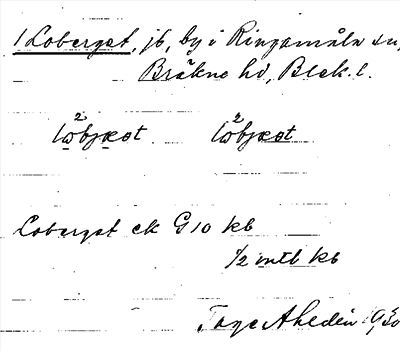 1 Loberget, jb, by i Ringamåla sn,
Bräkne hd, Blek. l.
2 2
Loberget ek G 10 kb
1/2 mtl kb
Tage Ahlèdin 1930